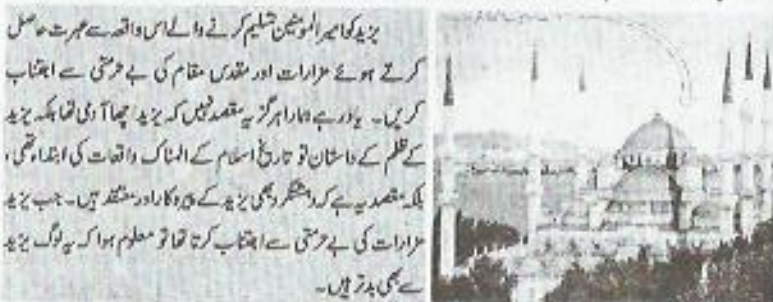 یزید کو امیر المومنین تسلیم کرنے والے اس واقعہ سے عبرت حاصل
کرتے ہوئے مزارات اور مقدس مقام کی بے حرمتی سے اجتناب
کریں۔ یاد رہے ہمارا ہرگز یہ مقصد نہیں کہ یزید اچھا آدمی تھا بلکہ یزید
کے ظلم کے داستان تو تاریخ اسلام کے المناک واقعات کی ابتداء تھی،
بلکہ مقصد یہ ہے کہ دہشتگرد بھی یزید کے پیروکار اور معتقد ہیں۔ جب یزید
مزارات کی بے حرمتی سے اجتناب کرتا تھا تو معلوم ہوا کہ یہ لوگ یزید
سے بھی بدتر ہیں۔